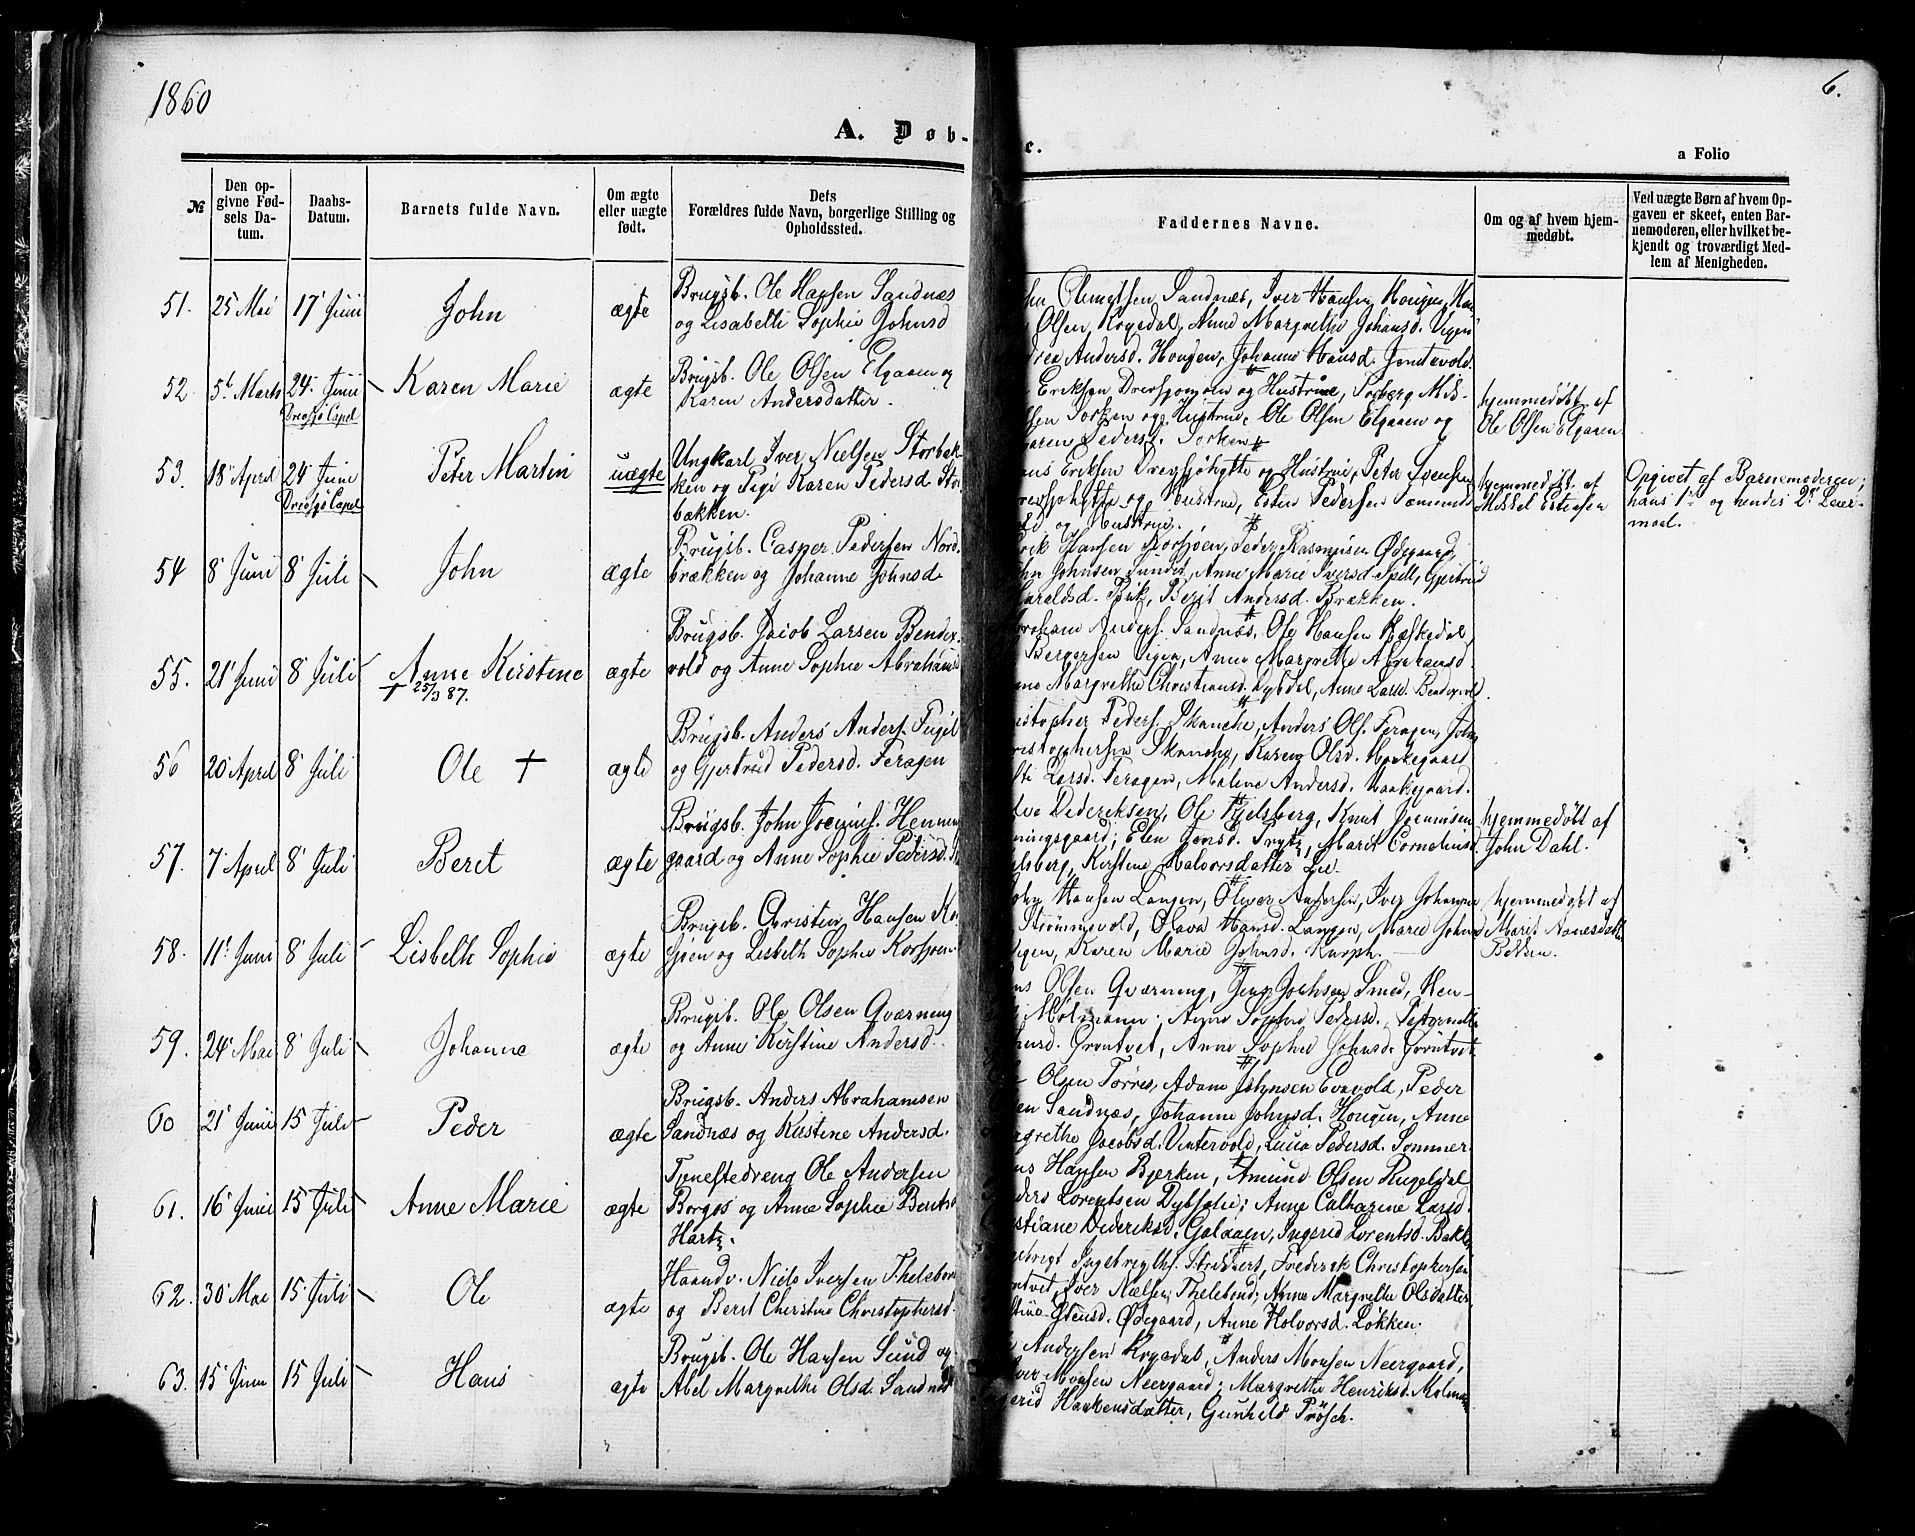 1860
6.
A. Døb-
e.
a Folio
№
Den op-
givne Fød-
sels Da-
tum.
Daabs-
Datum.
Barnets fulde Navn.
Om ægte
eller uægte
født.
Dets
Forældres fulde Navn, borgerlige Stilling og
Opholdssted.
Faddernes Navne.
Om og af hvem hjem-
medøbt.
Ved uægte Børn af hvem Op-
gaven er skeet, enten Bar-
nemoderen, eller hvilket be-
kjendt og troværdigt Med-
lem af Menigheden.
51. 25 Mai 17 Juni John ægte
Brugsb. Ole Hansen Sandnæs
og Lisabeth Sophie Johnsd
Olemetsen Sandnæs, Iver Hansen Hougen,
Olsen Krogedal, Anne Margrethe Johansd.
Andersd. Hougen, Johanne Hansd. Jentevold
52. 5t Marts 24 Juni Karen Marie ægte
Drevsjö Capel
Brugsb. Ole Olsen Elgaaen og
Karen Andersdatter.
Eriksen Drevsjømoen og Hustrue,
Sorken og Hustrue, Ole Olsen Elgaaen og
Pedersd. Sorken
hjemmedøbt af
Ole Olsen Elgaaen
53. 18 April 24 June Peter Martin uægte
Drevsjö Capel
Ungkarl Iver Nielsen Storbæk-
ken og Pige Karen Pedersd Stor-
bækken.
Eriksen Drevsjöhytte og Hustrue, Peter Svensen
Drevsjöhytte og Hustrue, Esten Pedersen
og Hustrue.
hjemmedøbt af
Mikkel Estensen
Opgivet af Barnemoderen;
hans 1ste og hendes 2det Leier-
maal.
54 8 Juni 8 Juli John ægte
Brugsb. Casper Pedersen Nord-
brækken og Johanne Johnsd.
Erik Hansen Korsjøen, Peder Rasmusen Ødegaard,
Johnsen Sundet, Anne Marie Iversd Spell, Gjertrud
Haraldsd. Birk, Berit Andersd. Brækken.
55. 21 Juni 8 Juli Anne Kirstine ægte
† 25/3 87.
Brugsb. Jacob Larsen Bendix-
vold og Anne Sophie Abrahamsd
Anders. Sandnæs, Ole Hansen
Bergersen Vigen, Anne Margrethe Abrahamsd.
Margrethe Christiansd. Dybdal, Anne Larsd. Bendixvold.
56 20 April 8 Juli Ole † ægte
Brugsb. Anders Anders. Fugel
og Gjertrud Pedersd. Feragen
Peders. Skancke, Anders Ols. Feragen, John
Christophersen Skancke, Karen Olsd. Haakegaard
Larsd. Feragen, Malene Andersd. Haakegaard.
57. 7 April 8 Juli Beret ægte
Brugsb. John Joenus. Henning-
gaard og Anne Sophie Pedersd.
Dedericksen, Ole Kjelsberg, Knut
Henningsgaard; Elen Jensd. Trytz, Marit Corneliusd
Kjelsberg, Kirstine Halvorsdatter Lie.
hjemmedöbt af
John Dahl.
58. 11t Juni 8 Juli Lisbeth Sophie ægte
Brugsb. Christen Hansen Kor-
sjøen og Lisbeth Sophie Korsjoen
Hansen Langen, Oliver Andersen, Iver Johansen
Strömmevold, Olava Hansd. Langen, Marie Johnsd
Vigen, Karen Marie Johnsd. Knoph.
hjemmedøbt af
Marit
Bekken.
59. 24 Mai 8 Juli Johanne ægte
Brugsb. Ole Olsen Qværning
og Anne Kirstine Andersd.
Olsen Qværning, Jens Jochsen Smed, Hen-
Molmann; Anne Sophie Pedersd.
Grøntvet, Anne Sophie Johnsd. Grøntvet
60 21 Juni 15 Juli Peder ægte
Brugsb. Anders Abrahamsen
Sandnæs og Kirstine Andersd.
Olsen Torres, Adam Johnsen Evavold, Peder
Sandnæs, Johanne Johnsd. Hougen, Anne
Margrethe Jacobsd. Vintervold, Lucia Pedersd. Sommer
61. 16 Juni 15 Juli Anne Marie ægte
Tjenestedreng Ole Andersen
Borgos og Anne Sophie Bentsd
Hartz.
Hansen Bjerken, Amund Olsen Rugeldal
Lorentsen Dybfolie; Anne Catharine Larsd.
Dedericksd. Galaaen, Ingerid Lorentsd. Bakke
62. 30 Mai 15 Juli Ole ægte
Haandv. Niels Iversen Thelebond
og Berit Christine Christophersd.
Ingebrigths. Strickert, Frederik Christophersen
Grøntvet, Iver Nielsen Thelebond; Anne Margrethe Olsdatter
Stensd. Ødegaard, Anne Halvorsd. Løkken.
63. 15 Juni 15 Juli Hans ægte
Brugsb. Ole Hansen Sund og
Abel Margrethe Olsd Sandnæs
Andersen Krogedal, Anders Monsen Neergaard,
Iver Monsen Neergaard; Margrethe Henriksd. Molmann
Haakensdatter, Gunhild Prøsch.